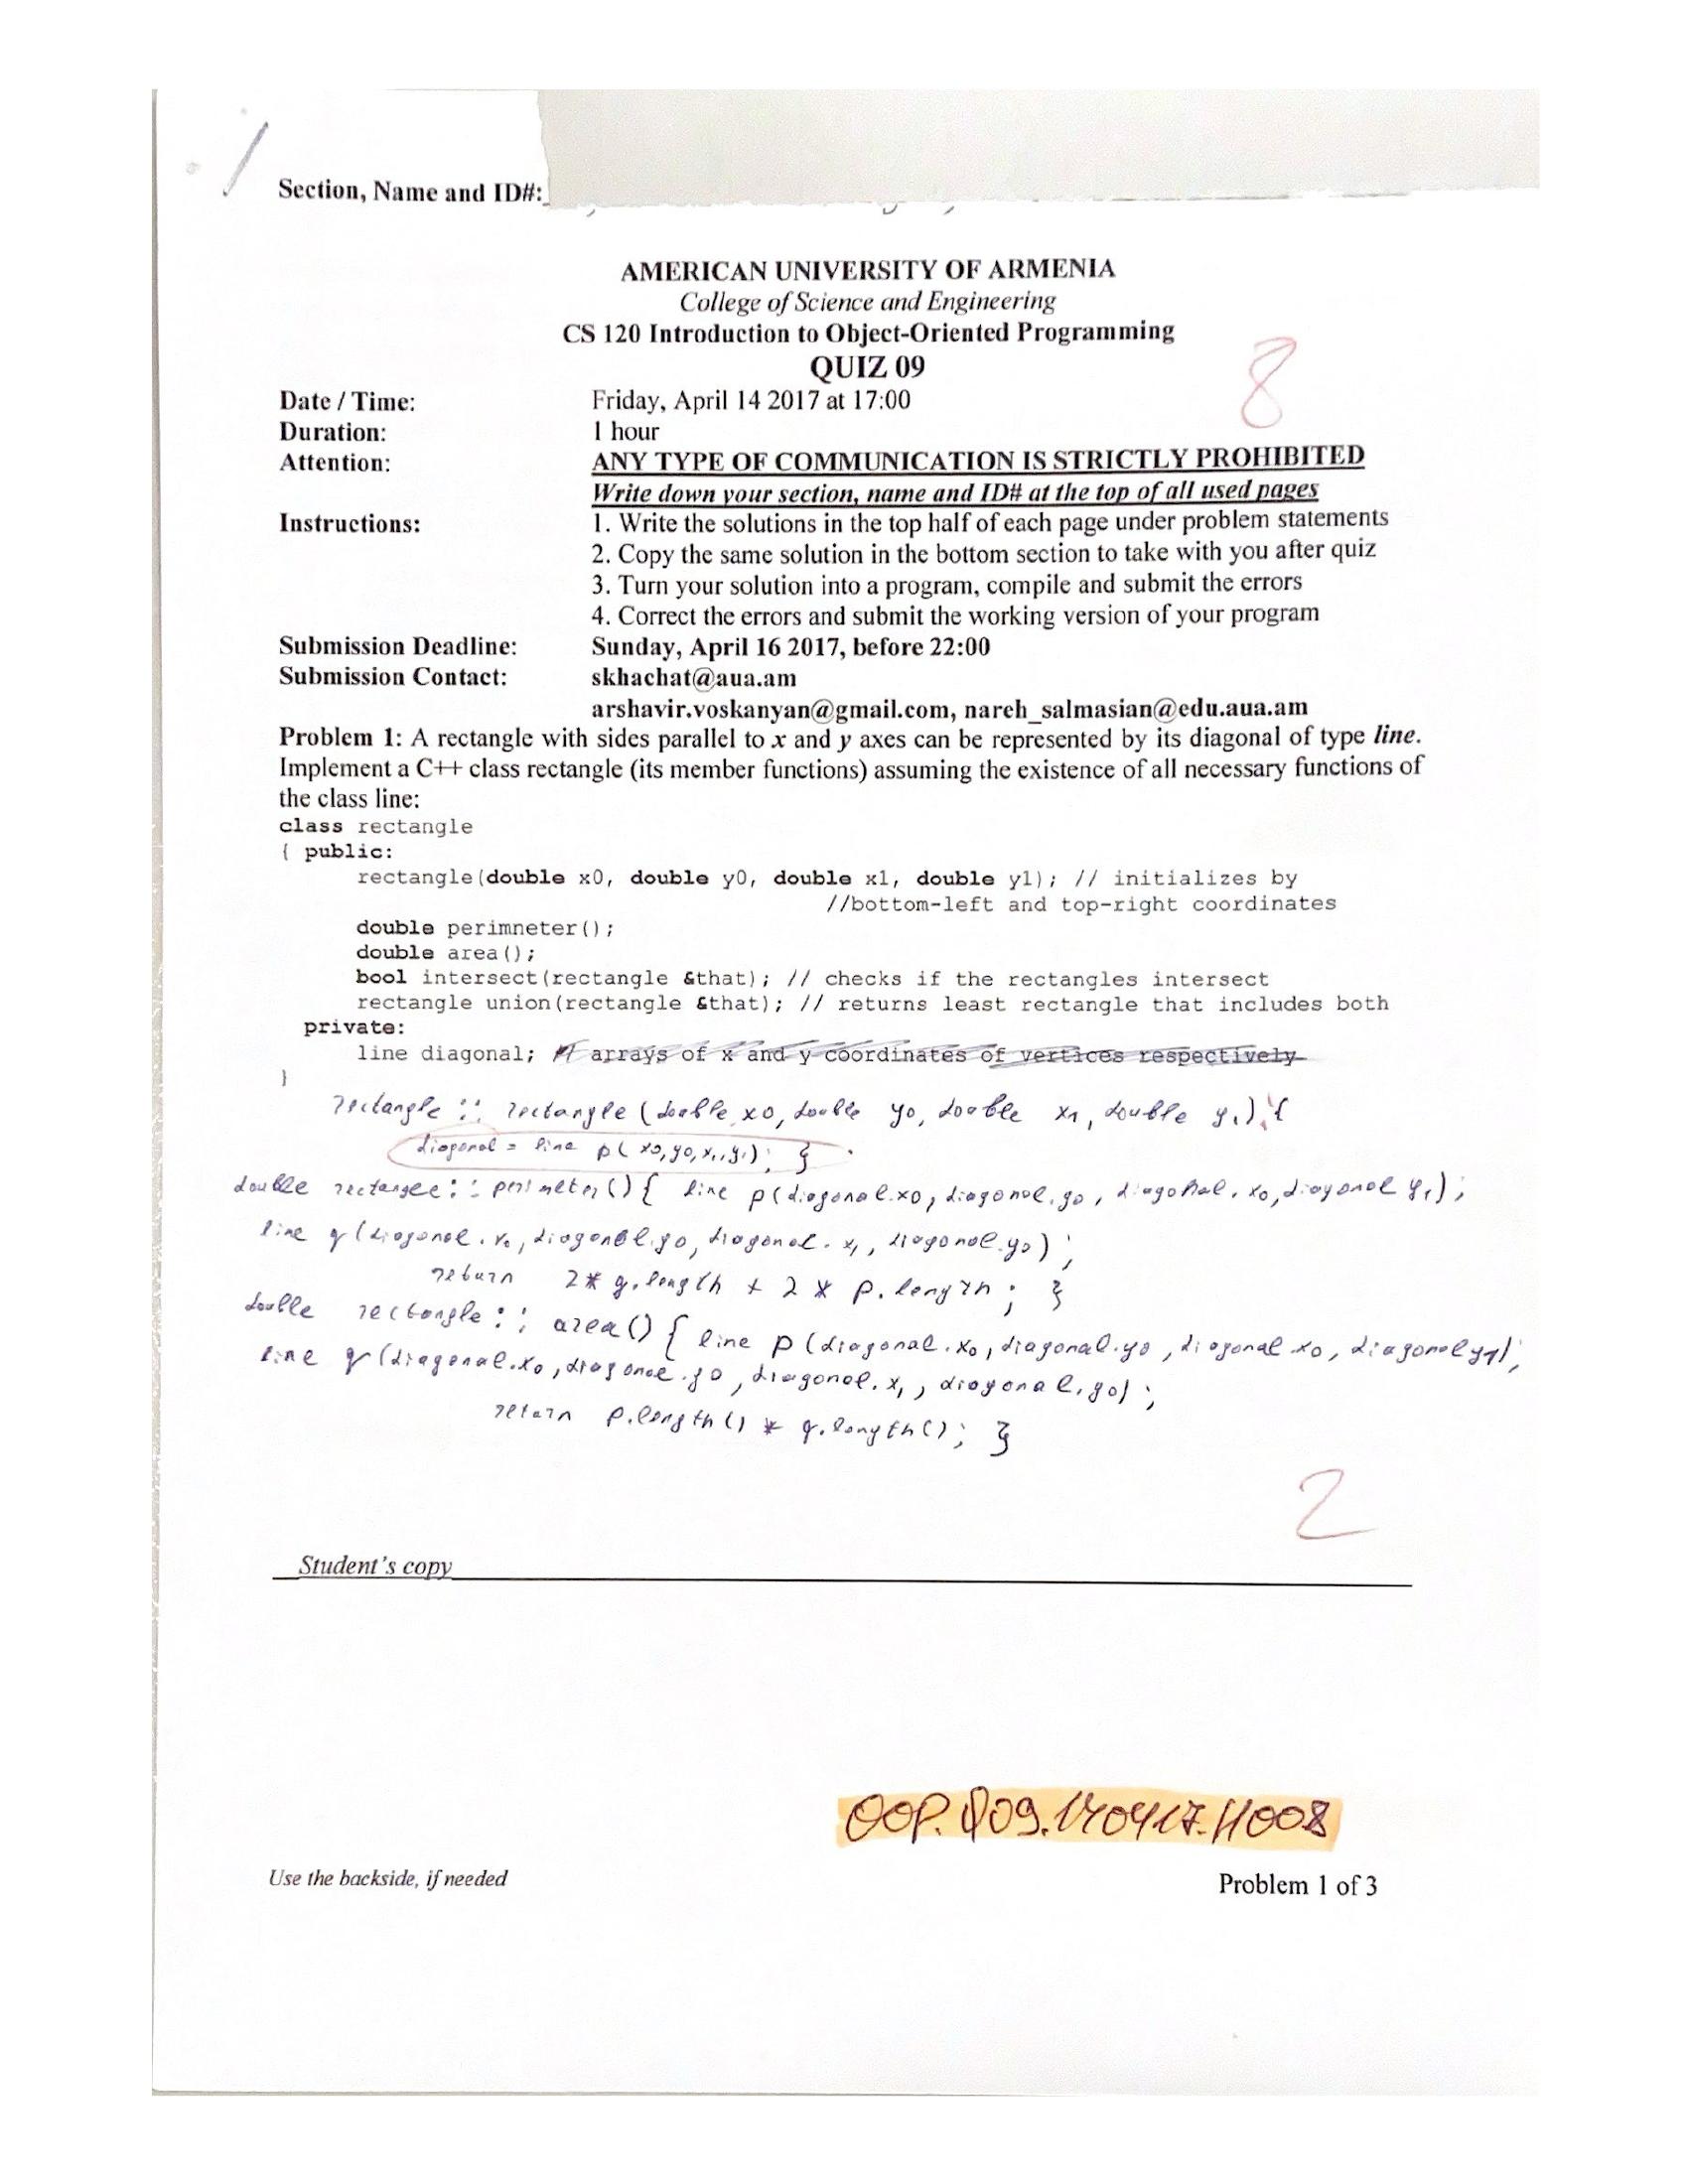 /
Section, Name and ID#:
AMERICAN UNIVERSITY OF ARMENIA
College of Science and Engineering
CS 120 Introduction to Object-Oriented Programming
QUIZ 09
8
Date / Time: Friday, April 14 2017 at 17:00
Duration: 1 hour
Attention: ANY TYPE OF COMMUNICATION IS STRICTLY PROHIBITED
Write down your section, name and ID# at the top of all used pages
Instructions: 1. Write the solutions in the top half of each page under problem statements
2. Copy the same solution in the bottom section to take with you after quiz
3. Turn your solution into a program, compile and submit the errors
4. Correct the errors and submit the working version of your program
Submission Deadline: Sunday, April 16 2017, before 22:00
Submission Contact: skhachat@aua.am
arshavir.voskanyan@gmail.com, nareh_salmasian@edu.aua.am
Problem 1: A rectangle with sides parallel to x and y axes can be represented by its diagonal of type line.
Implement a C++ class rectangle (its member functions) assuming the existence of all necessary functions of
the class line:
class rectangle
{ public:
rectangle(double x0, double y0, double x1, double y1); // initializes by
//bottom-left and top-right coordinates
double perimneter();
double area();
bool intersect(rectangle &that); // checks if the rectangles intersect
rectangle union(rectangle &that); // returns least rectangle that includes both
private:
line diagonal; // arrays of x and y coordinates of vertices respectively
}
rectangle :: rectangle (double x0, double y0, double x1, double y1) {
diagonal = line p( x0, y0, x1, y1); }
double rectangle :: perimeter() { line p(diagonal.x0, diagonal.y0, diagonal.x0, diagonal y1);
line q (diagonal.x0, diagonal.y0, diagonal.x1, diagonal.y0);
return 2* q.length + 2 * p.length; }
double rectangle :: area() { line p (diagonal.x0, diagonal.y0, diagonal.x0, diagonal y1);
line q (diagonal.x0, diagonal.y0, diagonal.x1, diagonal.y0);
return p.length() * q.length(); }
2
Student's copy
OOP.Q09.140417.H008
Use the backside, if needed
Problem 1 of 3